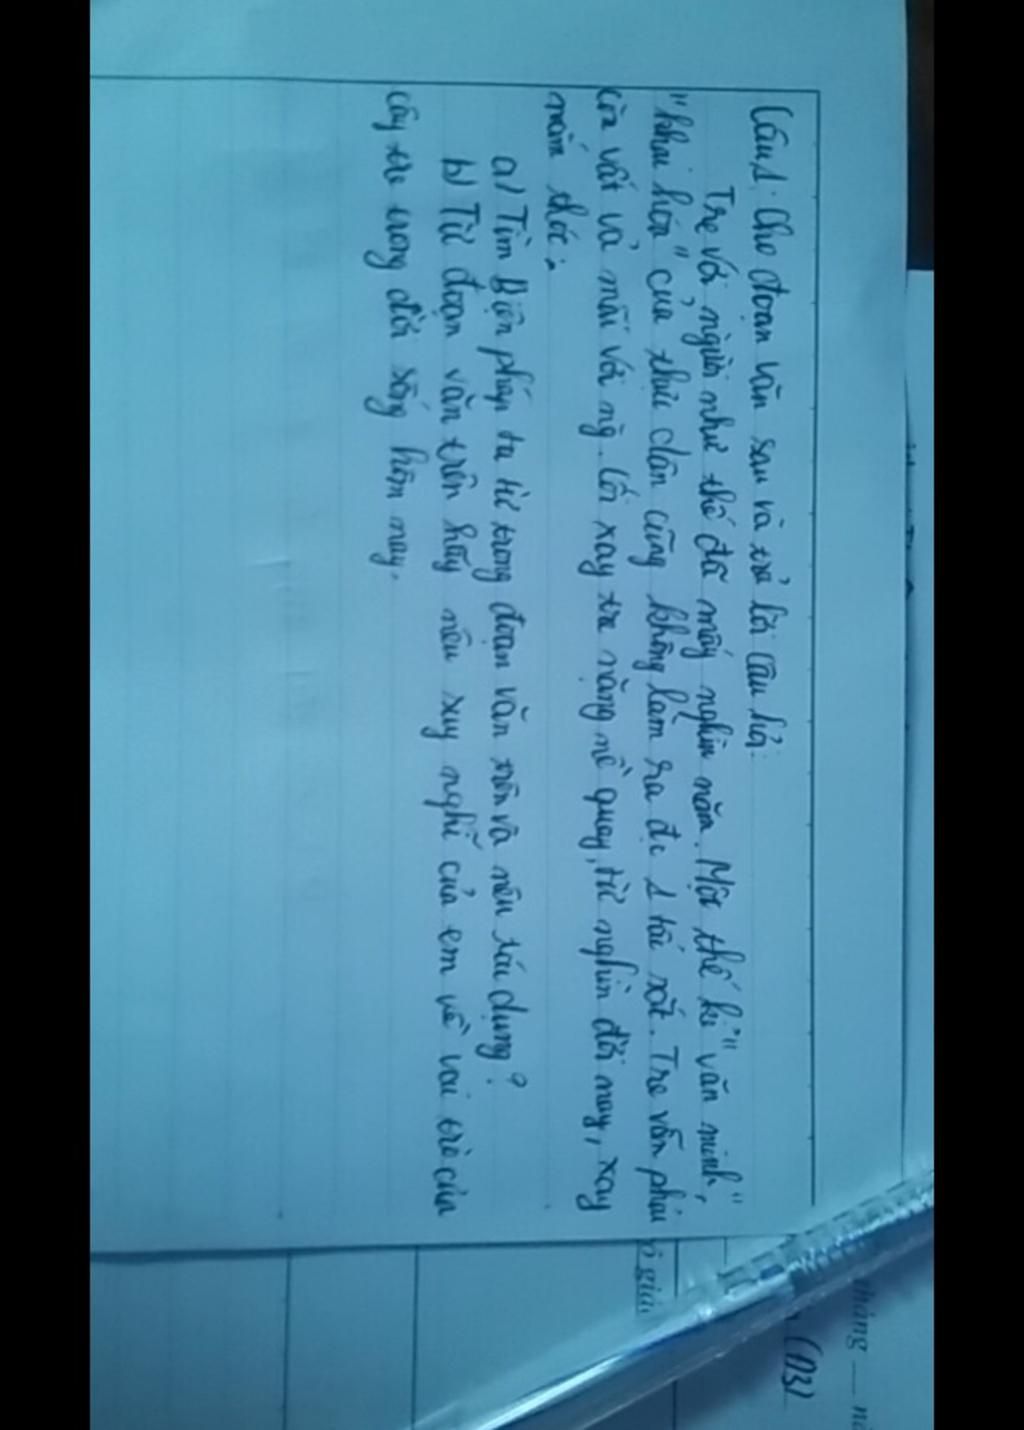 Câu 1: Cho đoạn văn sau và trả lời câu hỏi:
Tre với người như thế đã mấy nghìn năm. Một thế kỉ "văn minh",
"khai hóa" của thực dân cũng không làm ra đc 1 tấc sắt. Tre vẫn phải
còn vất vả mãi với ng. Cối xay tre nặng nề quay, từ nghìn đời nay, xay
nắm thóc:
a) Tìm Biện pháp tu từ trong đoạn văn trên và nêu tác dụng?
b) Từ đoạn văn trên hãy nêu suy nghĩ của em về vai trò của
cây tre trong đời sống hôm nay.
ô giá
tháng
(D3)